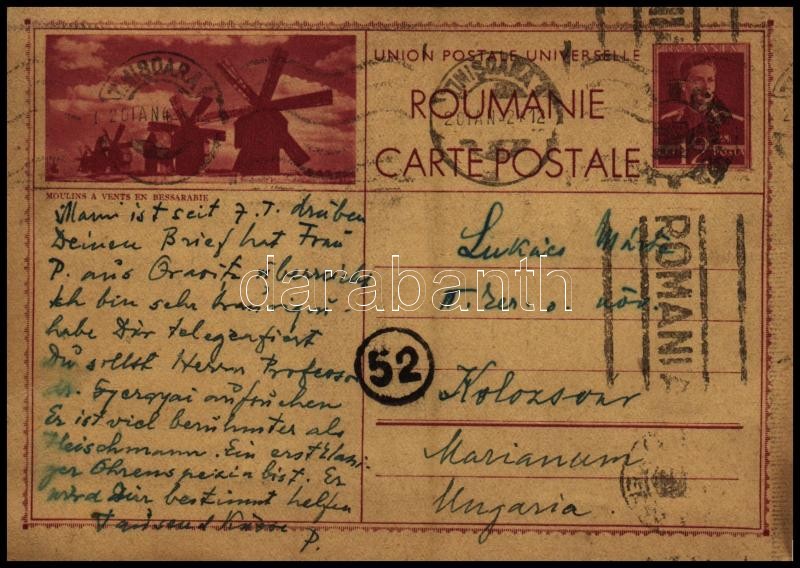 UNION POSTALE UNIVERSELLE
ROUMANIE
CARTE POSTALE
ROMANIA
TIMISOARA
20 IAN 42 12
MOULINS A VENTS EN BESSARABIE
Mami ist seit 7. T. drüben
Deinen Brief hat Frau
P. aus Oravitz
Ich bin sehr
habe Dir telegrafiert
Du sollst Herrn Professor
dr. Gyergyai aufsuchen
Er ist viel berühmter als
Fleischmann. Ein erstklassi-
ger Ohrenspezialist. Er
wird Dir bestimmt helfen
Tausend Küsse
P.
Lukács
II. növ.
Kolozsvár
Marianum
Ungaria
52
ROMANIA
darabanth